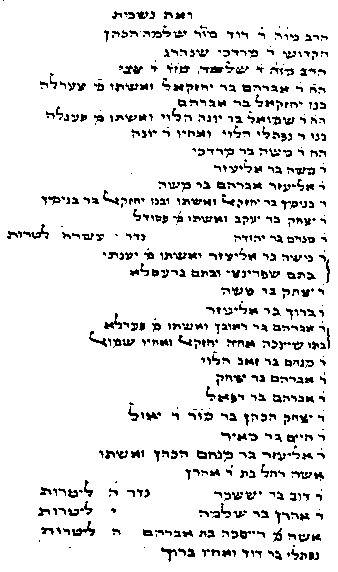 ואת נשכית
הרב מו״ה ר׳ דוד מו״ר שלמה הכהן
הקדוש׳ ר׳ מרדכי שנהרג
הרב מו״ה ר׳ מו״ר ר׳
הח׳ ר׳ אברהם בר יחזקאל ואשתו מ׳ צערלה
בנו יחזקאל בר אברהם
הח׳ ר׳ שמואל בר יונה הלוי ואשתו מ׳
בנו ר׳ נפתלי הלוי ואחיו ר׳ יונה
הח׳ ר׳ משה בר מרדכי
ר׳ משה בר אליעזר
ר׳ אליעזר אברהם בר משה
ר׳ בנימין בר יחזקאל ואשתו ובנו יחזקאל בר בנימין
ר׳ יצחק בר יעקב ואשתו מ׳
ר׳ מנחם בר יהודה נדר י׳ עשרה לטרות
ר׳ משה בר אליעזר ואשתו מ׳ יענטי
בתם שפרינצי ובתם
ר׳ יצחק בר משה
ר׳ ברוך בר אליעזר
ר׳ אברהם בר ראובן ואשתו מ׳ פערלא
בתו שיינכה אחיה יחזקאל ואחיו שמואל
ר׳ מנחם בר זאב הלוי
ר׳ אברהם בר יצחק
ר׳ אברהם בר רפאל
ר׳ יצחק הכהן בר מו״ר ר׳ יואל
ר׳ חיים בר מאיר
ר׳ אליעזר בר מנחם הכהן ואשתו
אשה רחל בת ר׳ אהרן
ר׳ דוב בר יששכר נדר ה׳ ליטרות
ר׳ אהרן בר שלמה י׳ ליטרות
אשה מ׳ רייסכה בת אברהם ה׳ ליטרות
נפתלי בר דוד ואחיו ברוך